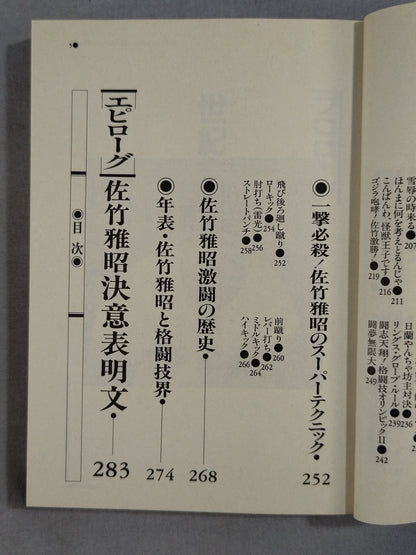 雪辱の時来る●207
ほんまに何を考えとるんじゃ●211
こんばんわ、怪獣王子です●216
ゴジラ咆哮!佐竹激勝!●219
日蘭やんちゃ坊主対決●236
リングス・グローブ・ルール●239
闘志天翔!格闘技オリンピックⅡ●242
闘夢無限大●249
●一撃必殺!佐竹雅昭のスーパーテクニック・252
飛び後ろ廻し蹴り●252
ローキック●254
肘打ち(雷光)●256
ストレートパンチ●258
前蹴り●260
レバー打ち●262
ミドルキック●264
ハイキック●266
●佐竹雅昭激闘の歴史・268
●年表・佐竹雅昭と格闘技界・274
エピローグ 佐竹雅昭決意表明文・283
●目次●
5●